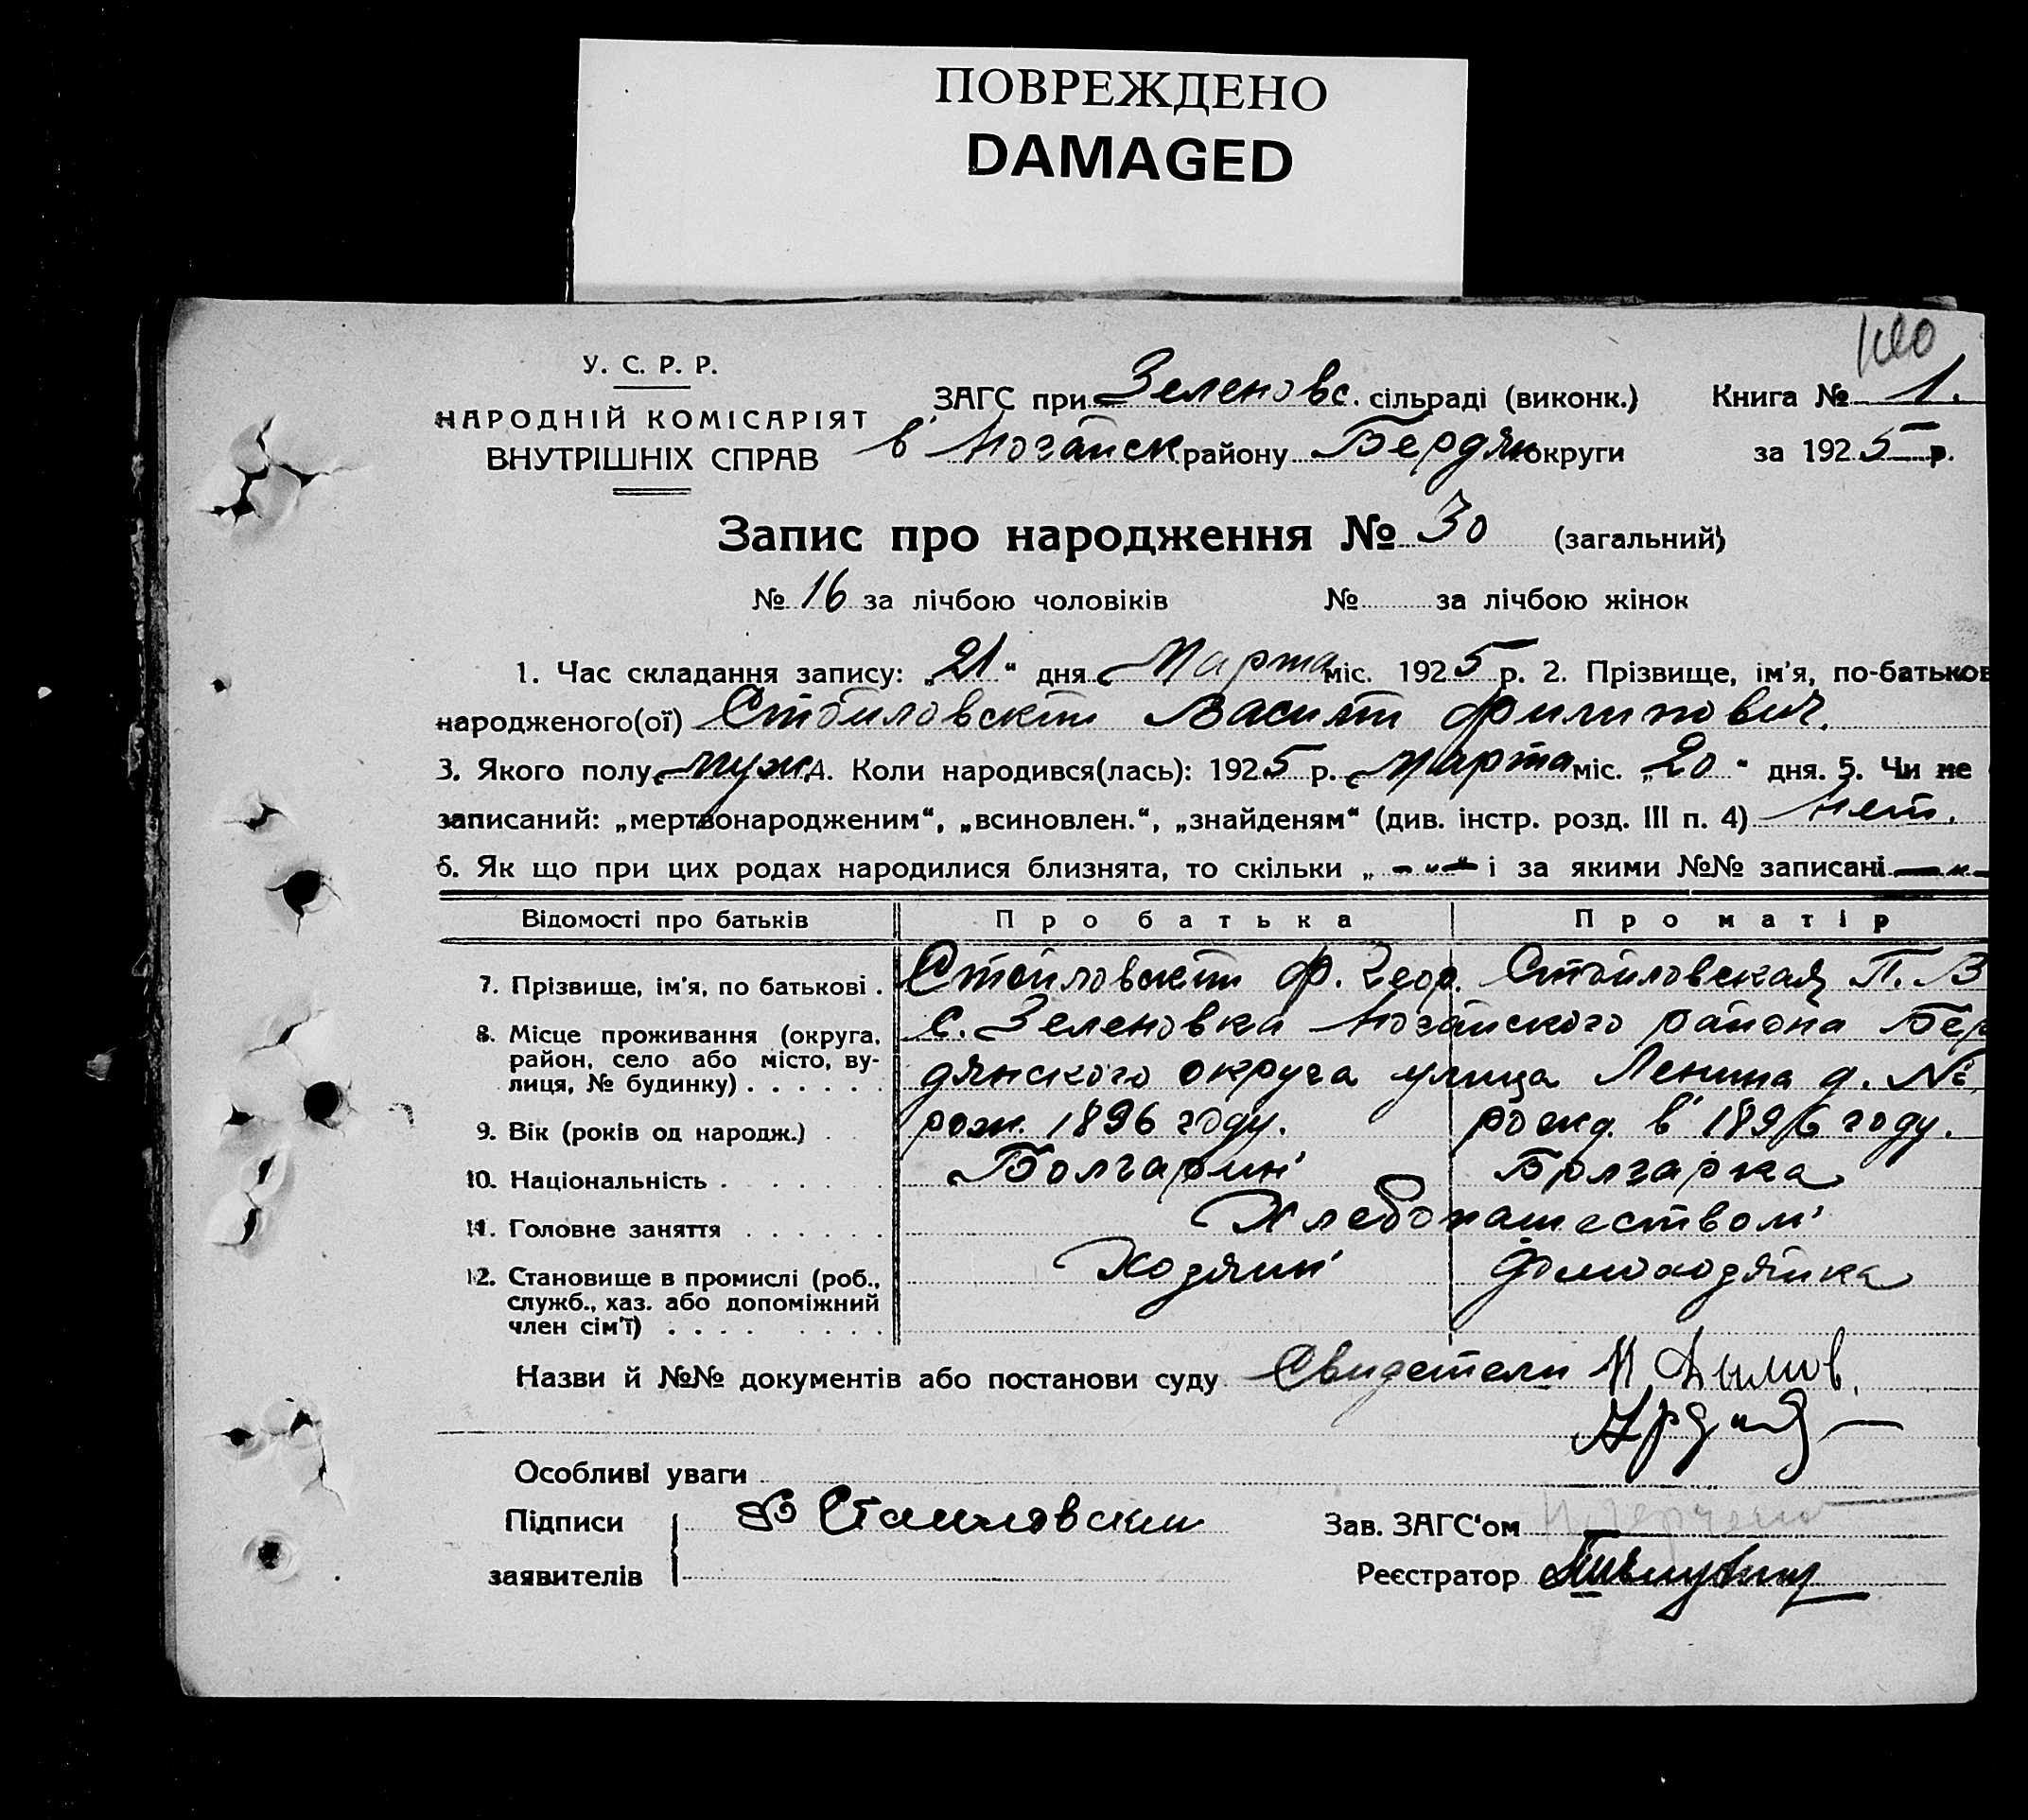 ПОВРЕЖДЕНО
DAMAGED
У. С. Р. Р.
НАРОДНІЙ КОМІСАРІЯТ
ВНУТРІШНІХ СПРАВ
ЗАГС при Зеленовс. сільраді (виконк.) Книга № 1.
в Ногайск району Бердян округи за 1925 р.
Запис про народження № 30 (загальний)
№ 16 за лічбою чоловіків № за лічбою жінок
1. Час складання запису: „21“ дня Марта міс. 1925 р. 2. Прізвище, ім'я, по-батьков
народженого(ої) Стоиловский Василий Филипович.
3. Якого полу муж. 4. Коли народився(лась): 1925 р. Марта міс. „20“ дня. 5. Чи не
записаний: „мертвонародженим“, „всиновлен.“, „знайденям“ (див. інстр. розд. III п. 4) Нет.
6. Як що при цих родах народилися близнята, то скільки „ - „ - “ і за якими №№ записані - „ -
Відомості про батьків Про батька Про матір
7. Прізвище, ім'я, по батькові . Стоиловский Ф. Геор. Стоиловская П. В
8. Місце проживання (округа, район, село або місто, вулиця, № будинку) . . . . . . с. Зеленовка Ногайского района Бер
дянского округа улица Ленина д. №
9. Вік (років од народж.) . . рож. 1896 году. рожд. в 1896 году.
10. Національність . . . . . Болгарин Болгарка
11. Головне заняття . . . . . . Хлебопашеством
12. Становище в промислі (роб., служб., хаз. або допоміжний член сім'ї) . . . . . . . . Хозяин Домохозяйка
Назви й №№ документів або постанови суду Свидетели Н. Дымов.
Особливі уваги
Підписи Ф Стаиловский Зав. ЗАГС'ом
заявителів Реєстратор